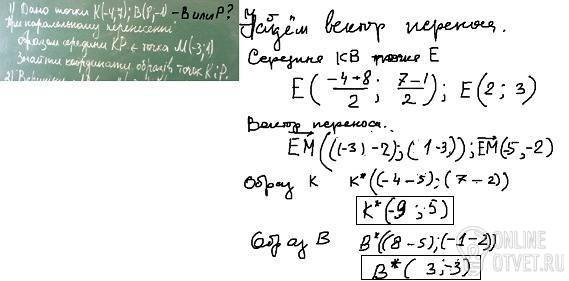 1) Дано точки K(-4,7); B(8,-1) - В или Р?
При паралельному перенесенні
образом середини KP є точка M(-3;1)
Знайти координати образів точок K i P.
2)
Найдём вектор переноса.
Середине KB точке E
E(-4+8/2; 7-1/2); E(2; 3)
Вектор переноса.
EM((-3)-2);(1-3)); EM(5,-2)
Образ K K*((-4-5);(7-2))
K*(-9;5)
Образ B B*((8-5);(-1-2))
B*(3;-3)
ONLINE
OTVET.RU